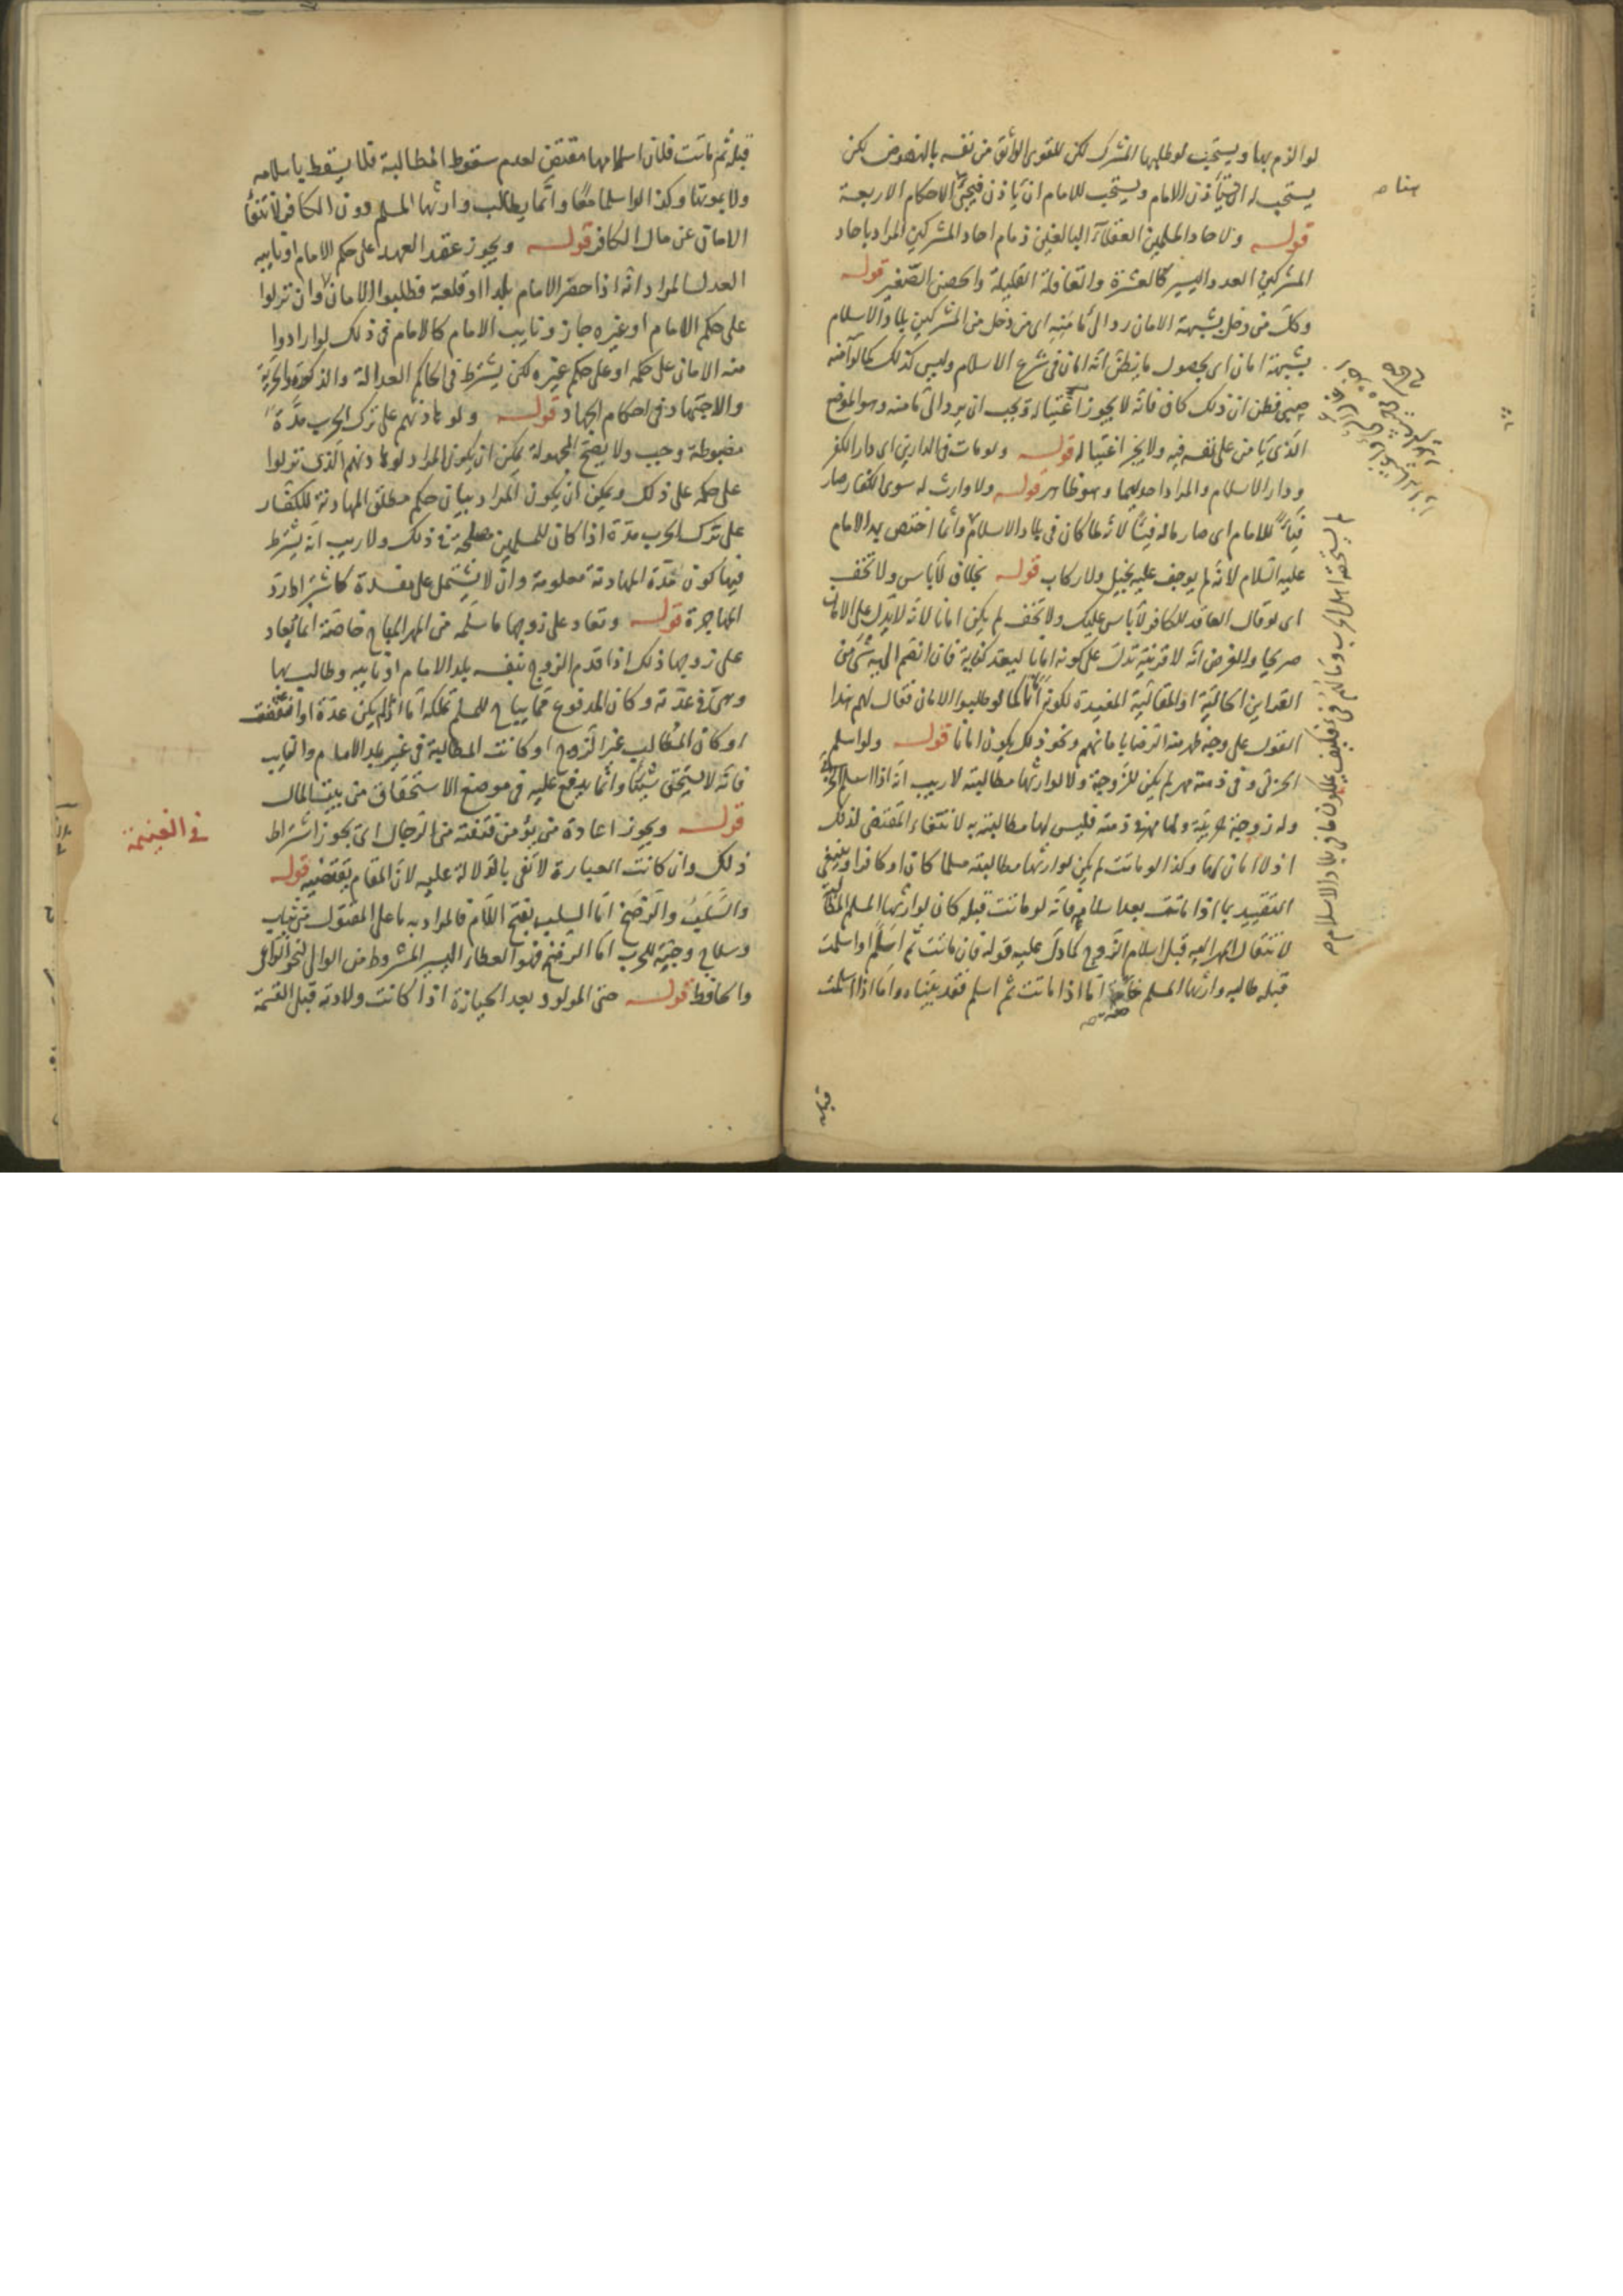 لو الزم بها ويستحب لو طلبها المشرك لكن للقوى الواثق من نفسه بالنهوض لكن
يستحب له ان يستأذن الامام ويستحب للامام ان يأذن فيجئ الاحكام الاربعة
قوله ولاحاد المسلمين العقلاء البالغين ذمام احاد المشركين المراد باحاد
المشركين العدد اليسير كالعشرة والقافلة القليلة والحصن الصغير قوله
وكل من دخل بشبهة الامان رد الى مأمنه اى من دخل من المشركين بلاد الاسلام
بشبهة امان اى بحصول ما يظن انه امان فى شرع الاسلام وليس كذلك كما لو آمنه
صبى فظن ان ذلك كاف فانه لا يجوز اغتياله ويجب ان يرد الى مأمنه وهو الموضع
الذى يأمن على نفسه فيه ولا يجز اغتياله قوله ولو مات فى الدارين اى دار الكفر
ودار الاسلام والمراد احديهما وهو ظاهر قوله ولا وارث له سوى الكفار صار
فيئا للامام اى صار ماله فيئا لانها كان فى بلاد الاسلام وانما اختص به الامام
عليه السلام لانه لم يوجف عليه بخيل ولا ركاب قوله بخلاف لا بأس ولا تخف
اى لو قال العاقد للكافر لا بأس عليك ولا تخف لم يكن امانا لانه لا يدل على الامان
صريحا والفرض انه لا قرينة تدل على كونه امانا ليعد كناية فان انضم اليه شئ من
القراين الحالية او المقالية المفيدة لكونه امانا كما لو طلبوا الامان فقال لهم هذا
القول على وجه ظهر منه الرضا بامانهم ونحو ذلك يكون امانا قوله ولو اسلم
الحربى وفى ذمته مهر لم يكن للزوجة ولا لوارثها مطالبته لا ريب انه اذا اسلم الحربى
وله زوجة حربية ولها مهر فى ذمته فليس لها مطالبته به لانتفاء المقتضى لذلك
اذ لا امان لها وكذا لو ماتت لم يكن لوارثها مطالبته مسلما كان او كافرا وينبغى
التقييد بما اذا ماتت بعد اسلامه فانه لو ماتت قبله كان لوارثها المسلم المطالبة
لانتقال المهر اليه قبل اسلام الزوج كما دل عليه قوله فان ماتت ثم اسلم او اسلمت
قبله طالبه وارثها المسلم خاصة اما اذا ماتت ثم اسلم فقد بيناه واما اذا اسلمت
لا يستحقه اهل الحرب وما لهم فئ فكيف يملكون ما فى بلاد الاسلام
قبله ثم
قبله ثم ماتت فلان اسلامها مقتض لعدم سقوط المطالبة فلا يسقط باسلامه
ولا بموتها وكذا لو اسلما معا وانما يطالب وارثها المسلم دون الكافر لانتفاء
الامان عن مال الكافر قوله ويجوز عقد العهد على حكم الامام او نايبه
العدل المراد انه اذا حصر الامام بلدا او قلعة فطلبوا الامان وان نزلوا
على حكم الامام او غيره جاز ونايب الامام كالامام فى ذلك لو ارادوا
منه الامان على حكمه او على حكم غيره لكن يشترط فى الحاكم العدالة والذكورة والحرية
والاجتهاد فى احكام الجهاد قوله ولو هادنهم على ترك الحرب مدة
مضبوطة وجب ولا يصح المجهولة يمكن ان يكون المراد لو هادنهم الذى نزلوا
على حكمه على ذلك ويمكن ان يكون المراد بيان حكم مطلق المهادنة للكفار
على ترك الحرب مدة اذا كان للمسلمين مصلحة فى ذلك ولا ريب انه يشترط
فيها كون مدة المهادنة معلومة وان لا يشتمل على مفسدة كاشتراط رد
المهاجرة قوله وتعاد على زوجها ما سلمه من المهر المباح خاصة انما يعاد
على زوجها ذلك اذا قدم الزوج بنفسه بلد الامام او نايبه وطالب بها
وهى فى عدته وكان المدفوع مما يباح للمسلم تملكه اما اذا لم يكن عدة او انقضت
او كان المطالب غير الزوج او كانت المطالبة فى غير بلد الامام والنايب
فانه لا يستحق شيئا وانما يدفع عليه فى موضع الاستحقاق من بيت المال
قوله ويجوز اعادة من يؤمن فتنته من الرجال اى يجوز اشتراط
ذلك وان كانت العبارة لا تفى بالدلالة عليه لان المقام يقتضيه قوله
والسلب والرضخ اما السلب بفتح اللام فالمراد به ما على المقتول من ثياب
وسلاح وجنة للحرب اما الرضخ فهو العطاء اليسير المشروط من الوالى لنحو الراعى
والحافظ قوله حتى المولود بعد الحيازة اذا كانت ولادته قبل القسمة
فى الغنيمة